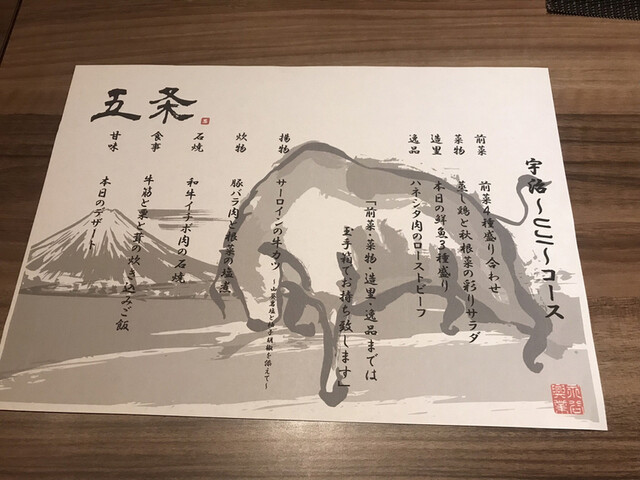 宇治〜ににに〜コース
前菜 前菜4種盛り合わせ
菜物 蒸し鶏と秋根菜の彩りサラダ
造里 本日の鮮魚3種盛り
逸品 ハネシタ肉のローストビーフ
「前菜・菜物・造里・逸品までは
玉手箱でお持ち致します」
揚物 サーロインの牛カツ
炊物 豚バラ肉と根菜の塩煮
石焼 和牛イチボ肉の石焼
食事 牛筋と栗と茸の炊き込みご飯
甘味 本日のデザート
五条